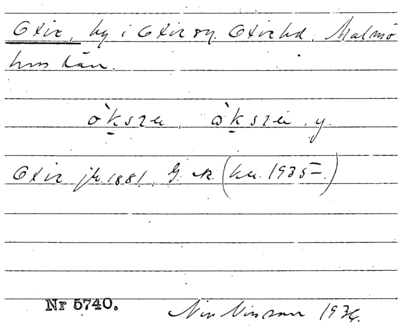 Oxie, by i Oxie sn. Oxie hd. Malmö
hus län.
òksze, àksze, y.
Oxie jk. 1881, G. K. (ka. 1935–)
Nr 5740.
Nils Nilsson 1936.